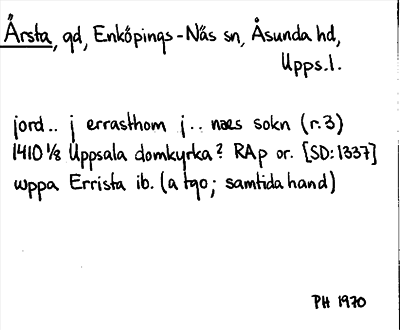 Årsta, gd, Enköpings-Näs sn, Åsunda hd,
Upps.l.
jord.. j errasthom j.. naes sokn (r.3)
1410 1/8 Uppsala domkyrka? RAp or. [SD:1337]
uppa Errista ib. (a tgo; samtida hand)
PH 1970